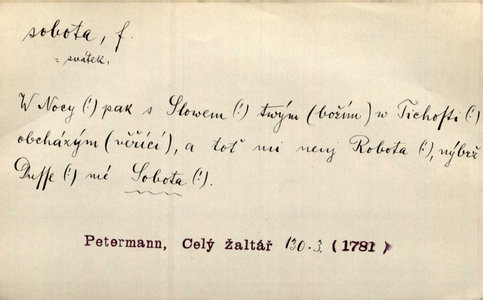 sobota, f.
= svátek.
W Nocy (!) pak s Slowem (!) twým (božím) w Tichosti (!)
obcházým (věřící), a toť mi neny Robota (!), nýbrž
Dusse (!) mé Sobota (!).
Petermann, Celý žaltář 130.3. (1781)